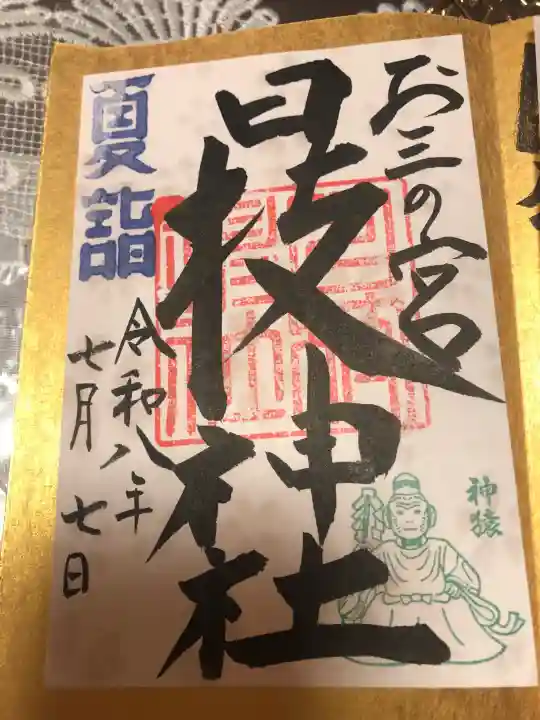 お三の宮
日枝神社
夏詣
令和八年
七月七日
神猿